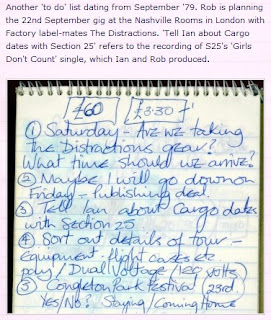 Another 'to do' list dating from September '79. Rob is planning
the 22nd September gig at the Nashville Rooms in London with
Factory label-mates The Distractions. 'Tell Ian about Cargo
dates with Section 25' refers to the recording of S25's 'Girls
Don't Count' single, which Ian and Rob produced.
£60 £3.30
① Saturday - Are we taking
the Distractions gear?
What time should we arrive?
② Maybe I will go down on
Friday - Publishing deal
③ Tell Ian about Cargo dates
with Section 25
④ Sort out details of tour -
Equipment - flight cases etc
pay / Dual Voltage / 120 volts
⑤ Congleton Park Festival 23rd
Yes/No? Staying / Coming Home